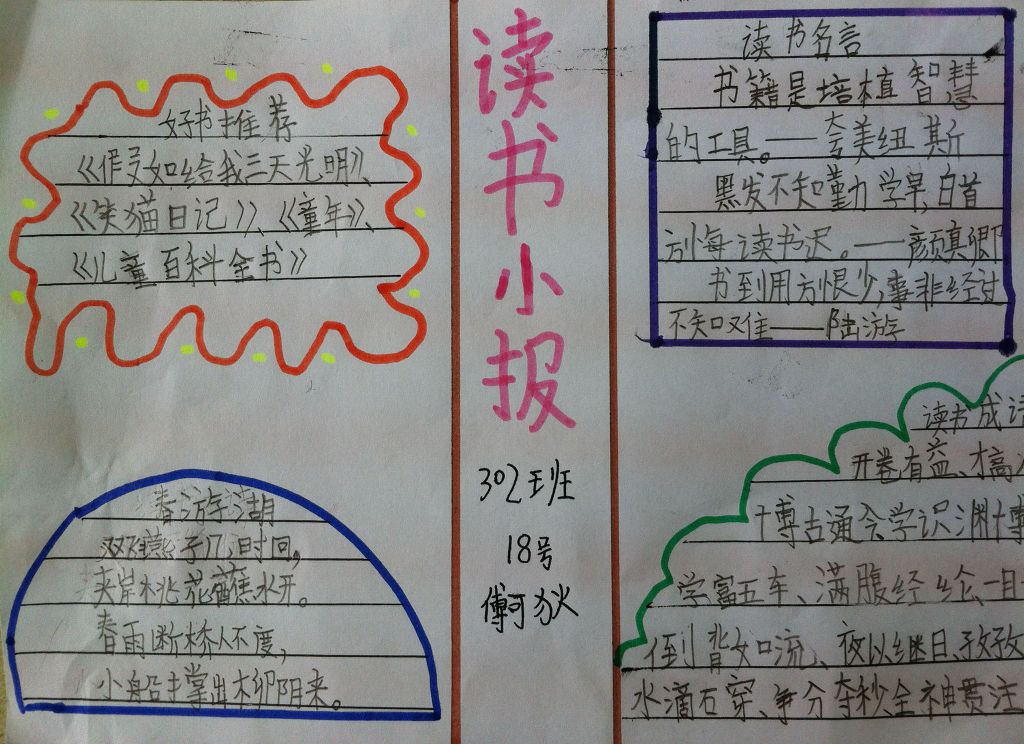 好书推荐
《假如给我三天光明》、
《笑猫日记》、《童年》、
《儿童百科全书》
春游湖
双双燕子几时回,
夹岸桃花蘸水开。
春雨断桥人不度,
小船撑出柳阴来。
读书小报
302班
18号
傅
读书名言
书籍是培植智慧
的工具。——夸美纽斯
黑发不知勤学早,白首
方悔读书迟。——颜真卿
书到用方恨少,事非经过
不知难——陆游
读书成语
开卷有益、才高
博古通今学识渊博
学富五车、满腹经纶、一目
倒背如流、夜以继日、孜孜
水滴石穿、争分夺秒全神贯注